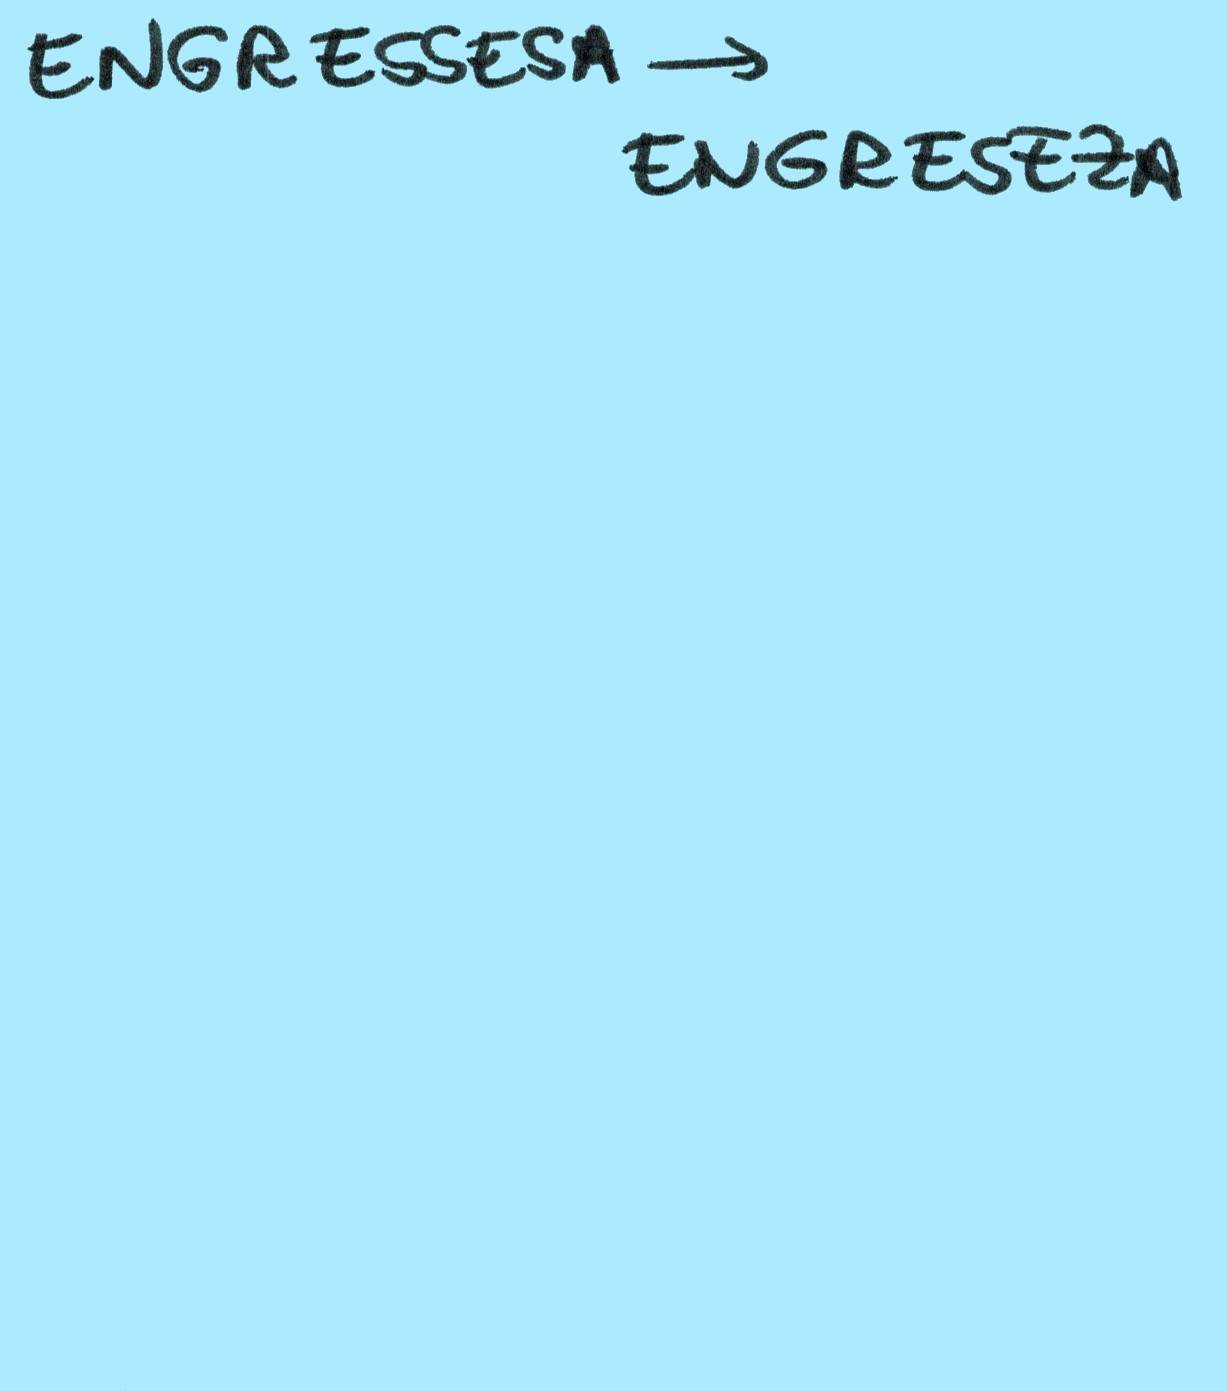 ENGRESSESA →
ENGRESEZA